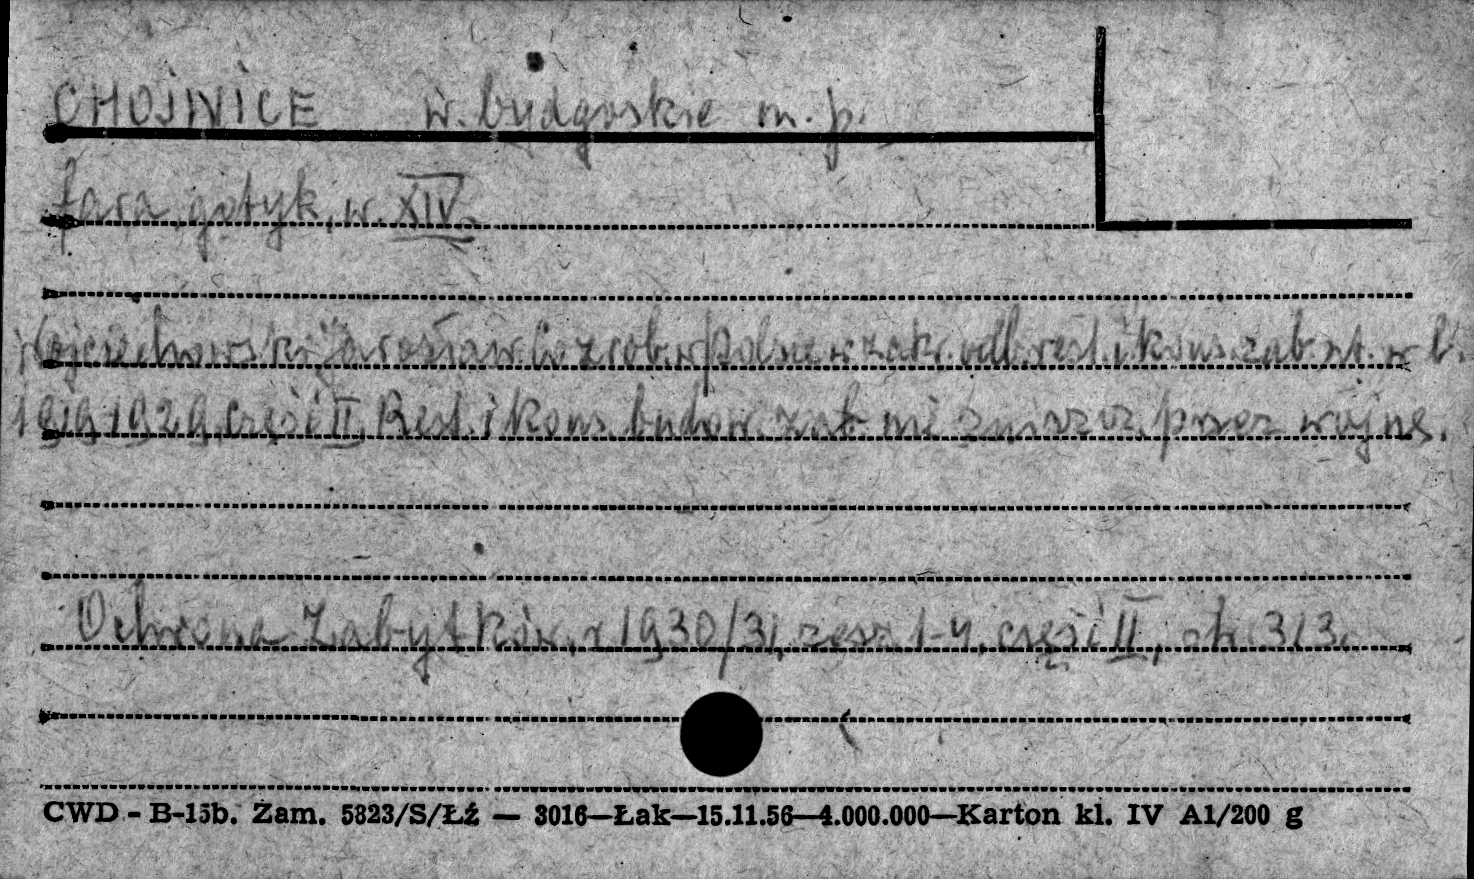 CHOJNICE w. bydgoskie m. p.
fara, gotyk, w. XIV.
Wojciechowski Jarosław. Co zrob. w Polsce w zakr. odb. rest. i kons. zab. szt. w l.
1919-1929, część II, Rest. i kons. budow. zab. nie zniszcz. przez wojnę.
Ochrona Zabytków, r. 1930/31, zesz. 1-4, część II, str. 313.
CWD - B-15b. Zam. 5823/S/Łź — 3016—Łak—15.11.56—4.000.000—Karton kl. IV A1/200 g